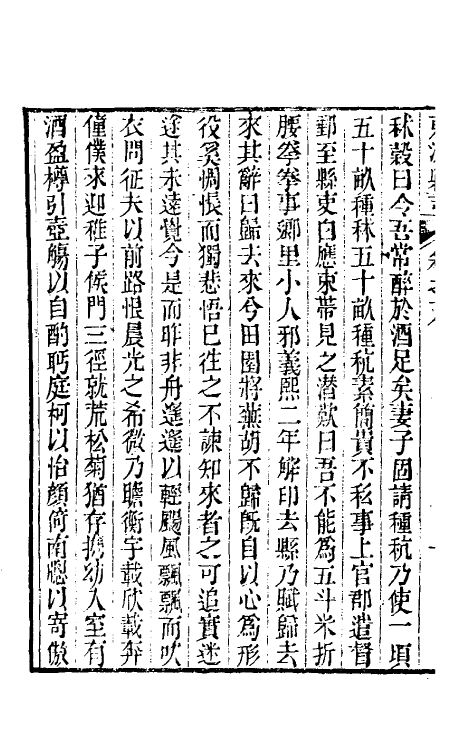 秫穀曰今吾常醉於酒足矣妻子固請種秔乃使一頃
五十畝種秫五十畝種秔素簡貴不私事上官郡遣督
郵至縣吏白應束帶見之潛歎曰吾不能爲五斗米折
腰拳拳事鄉里小人邪義熙二年解印去縣乃賦歸去
來其辭曰歸去來兮田園將蕪胡不歸旣自以心爲形
役奚惆悵而獨悲悟已往之不諫知來者之可追實迷
途其未遠覺今是而昨非舟遥遥以輕颺風飄飄而吹
衣問征夫以前路恨晨光之希微乃瞻衡宇載欣載奔
僮僕來迎稚子候門三徑就荒松菊猶存携幼入室有
酒盈樽引壺觴以自酌眄庭柯以怡顏倚南牕以寄傲